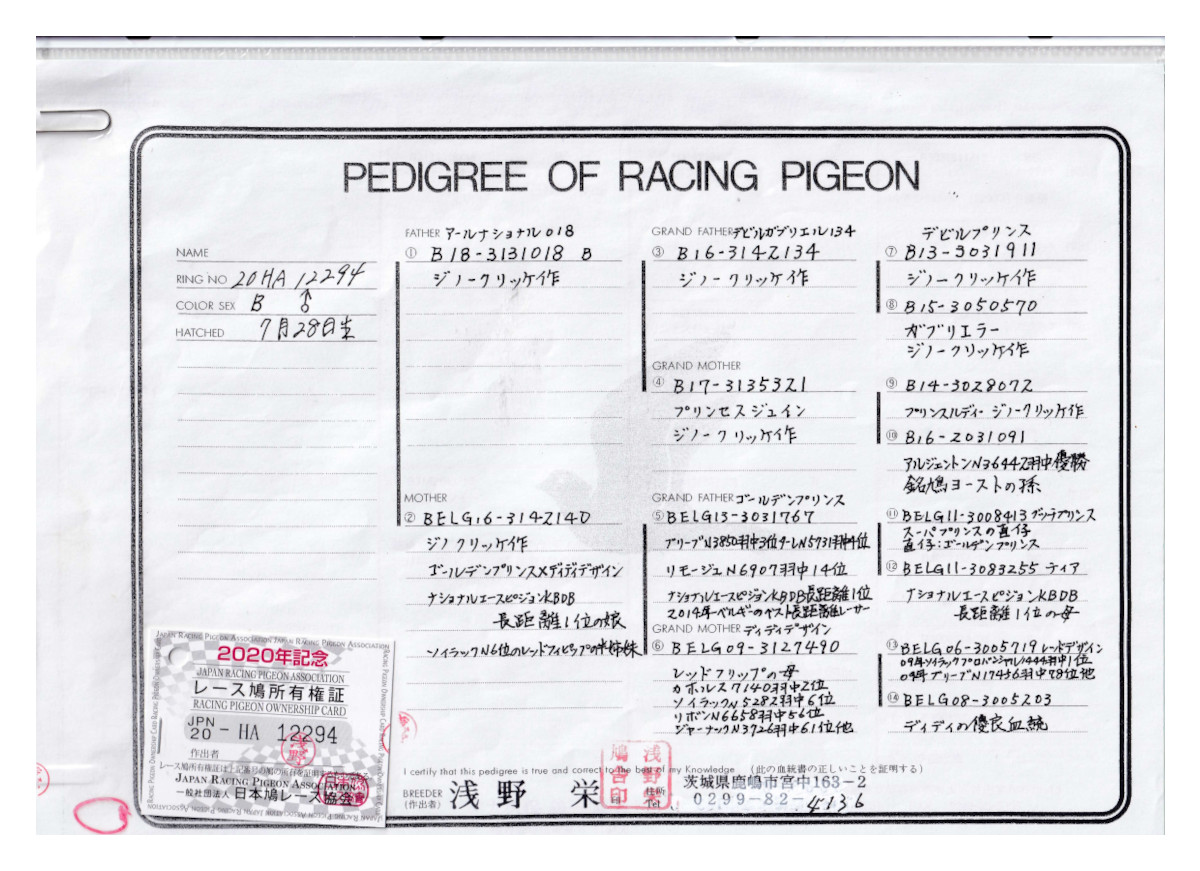 PEDIGREE OF RACING PIGEON
NAME
RING NO 20HA 12294
COLOR SEX B ♂
HATCHED 7月28日生
FATHER アールナショナル018
① B18-3131018 B
ジノークリッケイ作
MOTHER
② BELG16-3142140
ジノクリッケイ作
ゴールデンプリンス×ディディデザイン
ナショナルエースピジョンKBDB
長距離1位の娘
ソイラックN6位のレッドフィリップの半姉妹
GRAND FATHER デビルガブリエル134
③ B16-3142134
ジノークリッケイ作
GRAND MOTHER
④ B17-3135321
プリンセスジェイン
ジノークリッケイ作
GRAND FATHER ゴールデンプリンス
⑤ BELG13-3031767
ブリーブN3850羽中3位 N5731羽中4位
リモージュN6907羽中14位
ナショナルエースピジョンKBDB長距離1位
2014年ベルギーのベスト長距離レーサー
GRAND MOTHER ディディデザイン
⑥ BELG09-3127490
レッドフリップの母
カホルス7140羽中2位
ソイラックN5282羽中6位
リボンN6658羽中56位
ジャーナックN3726羽中61位他
デビルプリンス
⑦ B13-3031911
ジノークリッケイ作
⑧ B15-3050570
ガブリエラー
ジノークリッケイ作
⑨ B14-3028072
プリンスルディー ジノークリッケイ作
⑩ B16-2031091
アルジェントンN36442羽中優勝
銘鳩ヨーストの孫
⑪ BELG11-3008413 プリンス
スーパプリンスの直仔
直仔:ゴールデンプリンス
⑫ BELG11-3083255 ティア
ナショナルエースピジョンKBDB
長距離1位の母
⑬ BELG06-3005719 レッドデザイン
09年ソイラックプロバンシャル1444羽中1位
09年ブリーブN17436羽中78位他
⑭ BELG08-3005203
ディディの優良血統
I certify that this pedigree is true and correct to the best of my Knowledge (此の血統書の正しいことを証明する)
BREEDER
(作出者) 浅野 栄
浅野栄
鳩舎印
住所 茨城県鹿嶋市宮中163-2
Tel 0299-82-4136
JAPAN RACING PIGEON ASSOCIATION JAPAN RACING PIGEON ASSOCIATION
2020年記念
JAPAN RACING PIGEON ASSOCIATION
レース鳩所有権証
RACING PIGEON OWNERSHIP CARD
JPN
20 - HA 12294
作出者
浅野
JAPAN RACING PIGEON ASSOCIATION
一般社団法人 日本鳩レース協会